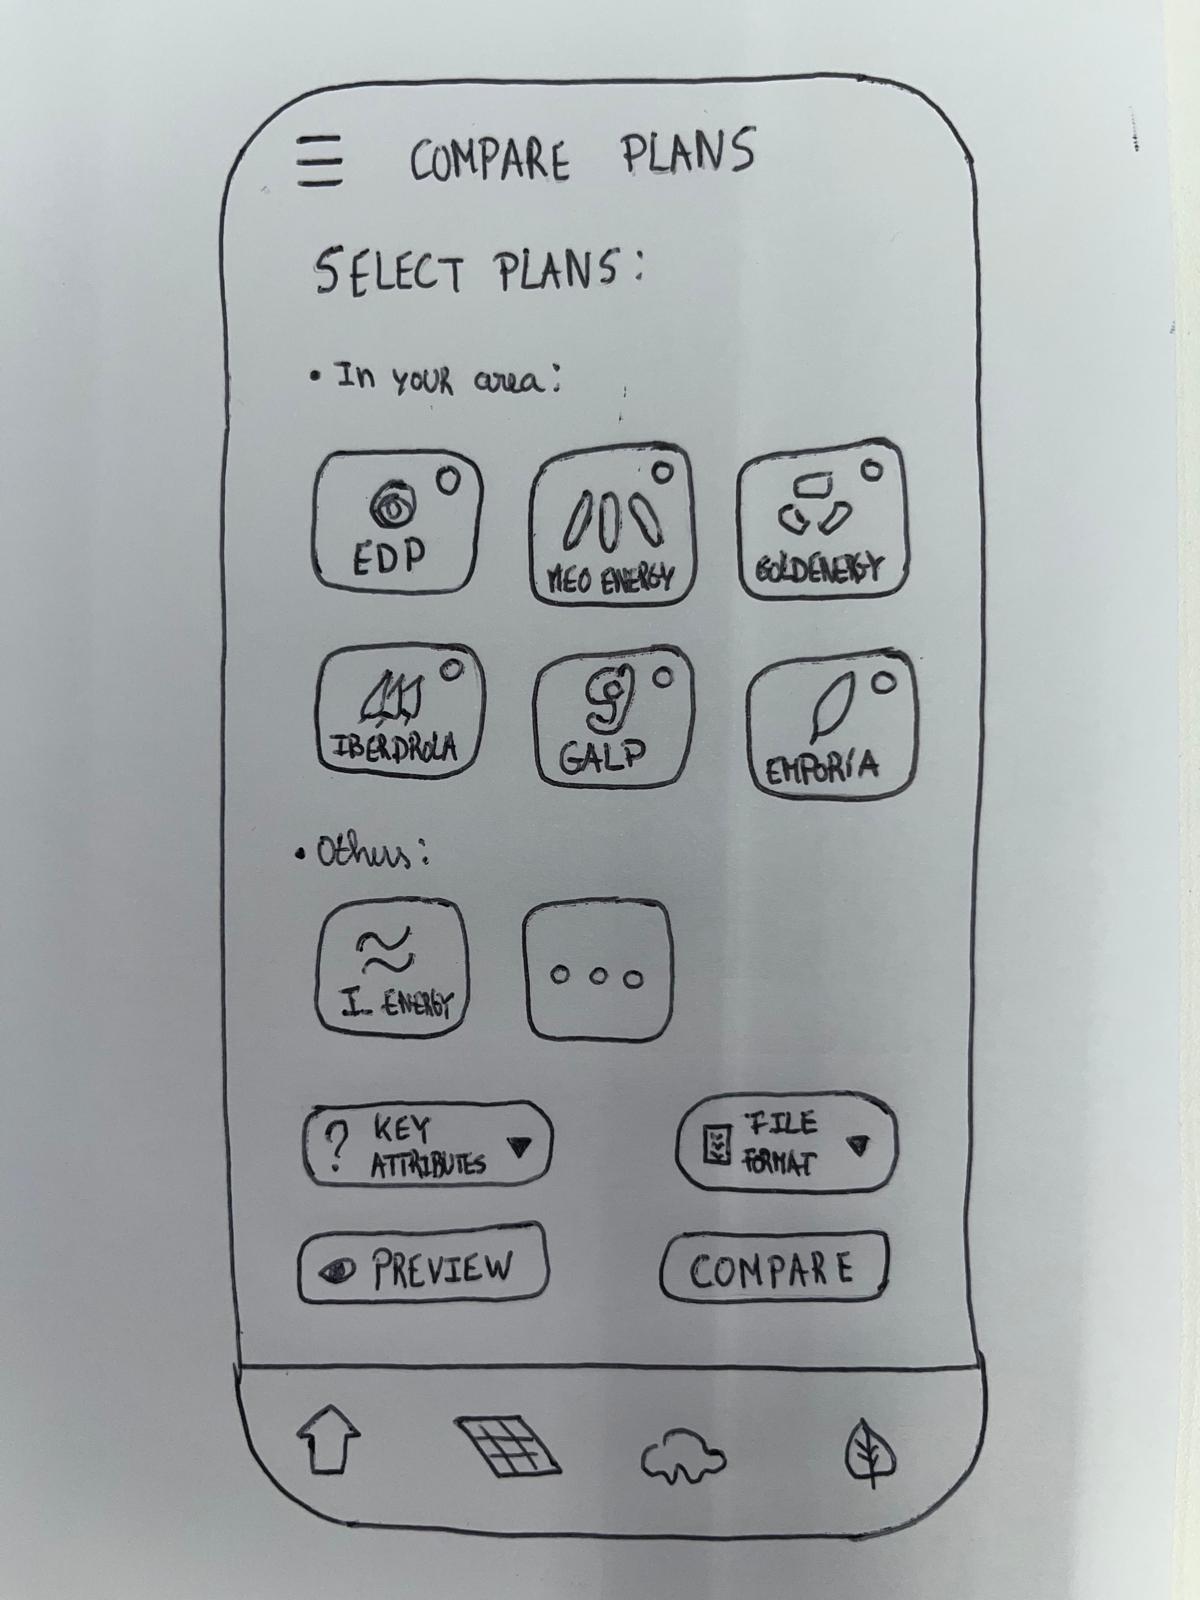 COMPARE PLANS
SELECT PLANS:
• In your area:
EDP
MEO ENERGY
GOLDENERGY
IBERDROLA
GALP
EMPORIA
• Others:
I. ENERGY
? KEY ATTRIBUTES
FILE FORMAT
PREVIEW
COMPARE